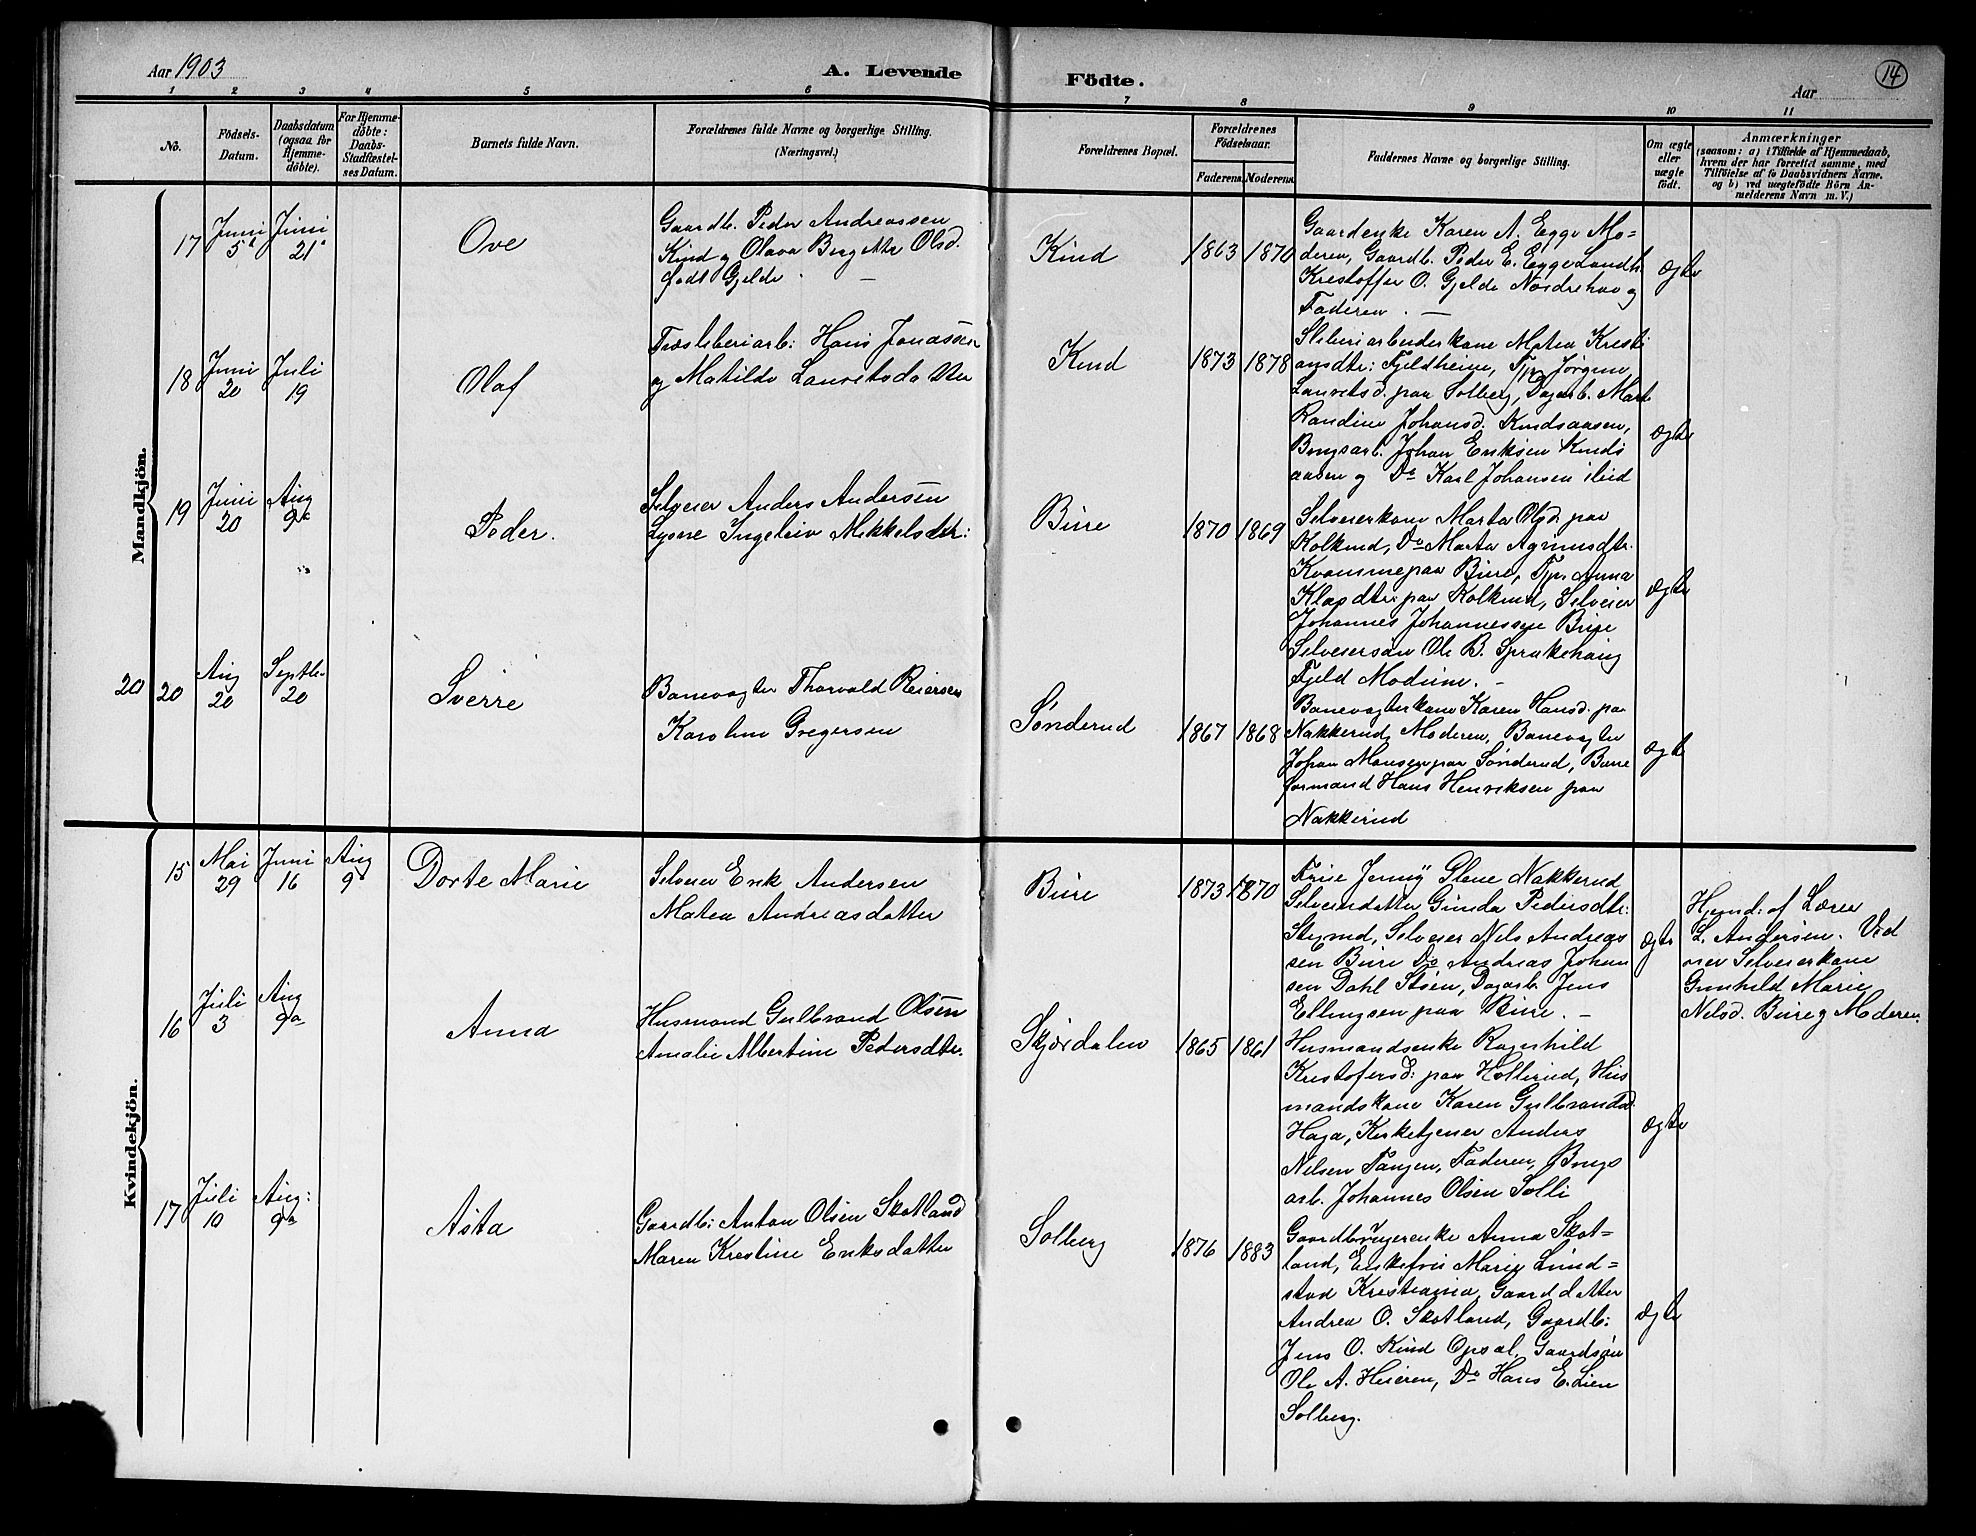 Aar 1903
A. Levende
Födte.
Aar
14
1 2 3 4 5 6 7 8 9 10 11
No.
Födsels-
Datum.
Daabsdatum
(ogsaa for
Hjemme-
döbte).
For Hjemme-
döbte:
Daabs-
Stadfæstel-
ses Datum.
Barnets fulde Navn.
Forældrenes fulde Navne og borgerlige Stilling.
(Næringsvei.)
Forældrenes Bopæl.
Forældrenes
Födselsaar.
Faderens.
Moderens.
Faddernes Navne og borgerlige Stilling.
Om ægte
eller
uægte
födt.
Anmærkninger
(saasom: a) i Tilfælde af Hjemmedaab,
hvem der har forrettet samme, med
Tilföielse af to Daabsvidners Navne.
og b) ved uægtefödte Börn An-
melderens Navn m. V.)
Mandkjön.
17
Juni
5
Juni
21
Ove
Gaardb. Peder Andreassen
Kind og Olava Bergitte Olsd.
født Gjelde
Kind
1863
1870
Gaardenke Karen A. Egge Mo=
deren, Gaardb. Peder E. Egge Landh.
Kristoffer O. Gjelde Nordrehov og
Faderen.
Ægte
18
Juni
20
Juli
19
Olaf
Træsliberiarb: Hans Jonassen
og Matilde Lauritsdatter
Kind
1873
1878
Sliberiarbeiderkone Matea Kristi
ansdtr: Fjeldheim, Jørgine
Lauritsd. paa Solberg, Dagarb. Mart
Randine Johansd. Kindsaasen,
Brugsarb. Johan Eriksen Kinds
aasen og Do Karl Johansen ibid
Ægte
19
Juni
20
Aug
9
Peder.
Selveier Anders Andersen
Lysne Ingelein Mikkelsdtr:
Bure
1870
1869
Selveierkone Marta Olsd. paa
Kolkind, Do Marta Agmundtr.
Kvamme paa Bure, Tjp. Anna
Klasdtr: paa Kolkind, Selveier
Johannes Johannessen Bure
Selveiersøn Ole B. Sprakehaug
Fjeld Modum.
Ægte
20
20
Aug
20
Septbr.
20
Sverre
Banevogter Thorvald Reiersen
Karoline Gregersen
Sønderud
1867
1868
Banevogterkone Karen Hansd. paa
Nakkerud, Moderen, Banevogter
Johan Monsen paa Sønderud, Bane
formand Hans Henriksen paa
Nakkerud
Ægte
Kvindekjön.
15
Mai
29
Juni
16
Aug
9
Dorte Marie
Selveier Erik Andersen
Matea Andreasdatter
Bure
1873
1870
Frue Jenny Plene Nakkerud
Selveierdatter Gunda Pedersdtr:
Selveier Nils Andreas
sen Bure Do Andreas Johan
sen Dahl Støen, Dagarb. Jens
Ellingsen paa Bure.
Ægte
Hjemd: af Lærer
L. Andersen. Vid
ner Selveierkone
Gunhild Marie
Nelsd. Bure og Moderen.
16
Juli
3
Aug
9
Anna
Husmand Gulbrand Olsen
Amalie Albertine Pedersdtr.
Skjærdalen
1865
1861
Husmandsenke Ragnhild
Kristofersd: paa Hollerud, Hus
mandskone Karen Gulbrandsd.
Haga, Kirketjener Anders
Nelsen Tangen, Faderen, Brugs
arb. Johannes Olsen Solli
Ægte
17
Juli
10
Aug:
9
Asta
Gaardb: Anton Olsen Skotland
Maren Kristine Eriksdatter
Solberg
1876
1883
Gaardbrugerenke Anna Skot=
land, Enkefru Marie Lund=
stad Kristiania, Gaarddatter
Andrea O. Skotland, Gaardb:
Jens O. Kind Opsal, Gaardsøn
Ole A. Heieren, Do Hans E. Lien
Solberg.
Ægte